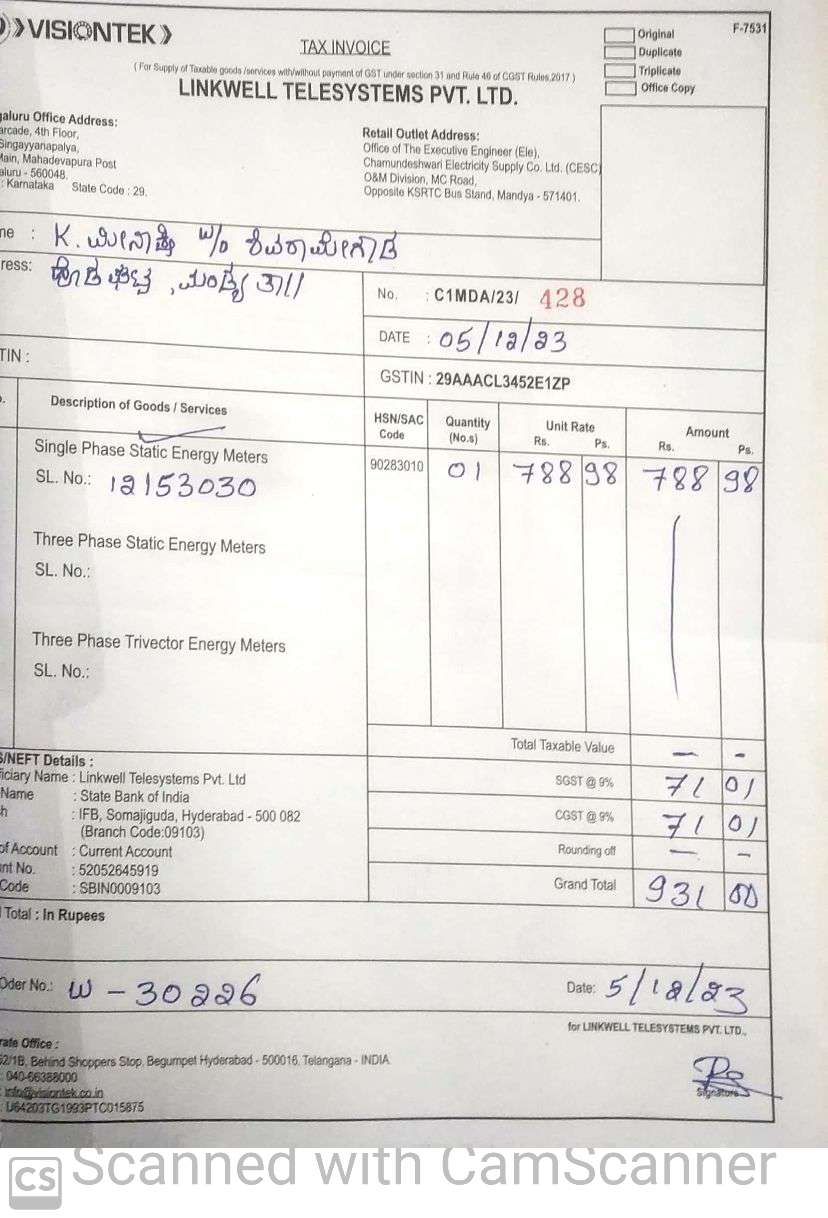 VISIONTEK
F-7531
TAX INVOICE
Original
Duplicate
Triplicate
Office Copy
( For Supply of Taxable goods /services with/without payment of GST under section 31 and Rule 46 of CGST Rules,2017 )
LINKWELL TELESYSTEMS PVT. LTD.
galuru Office Address:
arcade, 4th Floor,
Singayyanapalya,
Main, Mahadevapura Post
aluru - 560048.
: Karnataka State Code : 29.
Retail Outlet Address:
Office of The Executive Engineer (Ele),
Chamundeshwari Electricity Supply Co. Ltd. (CESC)
O&M Division, MC Road,
Opposite KSRTC Bus Stand, Mandya - 571401.
me : K. ಮೀನಾಕ್ಷಿ W/o ಶಿವರಾಮೇಗೌಡ
ress: ಮಂಡ್ಯ ತಾ||
No. : C1MDA/23/ 428
DATE : 05/12/23
TIN :
GSTIN : 29AAACL3452E1ZP
Description of Goods / Services HSN/SAC Code Quantity (No.s) Unit Rate Rs. Ps. Amount Rs. Ps.
Single Phase Static Energy Meters 90283010 01 788 98 788 98
SL. No.: 12153030
Three Phase Static Energy Meters
SL. No.:
Three Phase Trivector Energy Meters
SL. No.:
Total Taxable Value — -
SGST @ 9% 71 01
CGST @ 9% 71 01
Rounding off — -
Grand Total 931 00
S/NEFT Details :
ficiary Name : Linkwell Telesystems Pvt. Ltd
Name : State Bank of India
h : IFB, Somajiguda, Hyderabad - 500 082
(Branch Code:09103)
of Account : Current Account
unt No. : 52052645919
Code : SBIN0009103
l Total : In Rupees
Oder No.: W - 30226
Date: 5/12/23
for LINKWELL TELESYSTEMS PVT. LTD.,
rate Office :
62/1B, Behind Shoppers Stop, Begumpet Hyderabad - 500016, Telangana - INDIA
: 040-66388000
: info@visiontek.co.in
: U64203TG1993PTC015875
Signature
CS Scanned with CamScanner